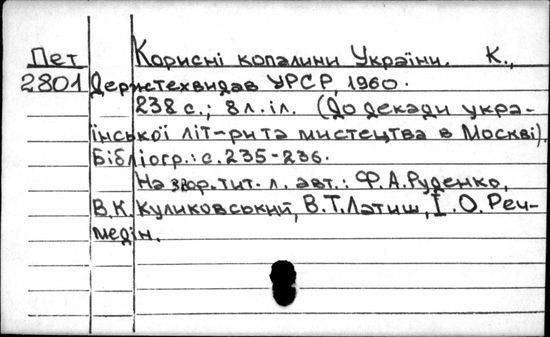 Пет Корисні копалини України. К.,
2801 Держтехвидав УРСР, 1960.
238 с.; 8 л. іл. (До декади укра-
їнської літ-ри та мистецтва в Москві).
Бібліогр.: с. 235-236.
На звор. тит. л. авт.: Ф.А.Руденко,
В.К. Куликовський, В.Т.Латиш, І.О. Реч-
медін.